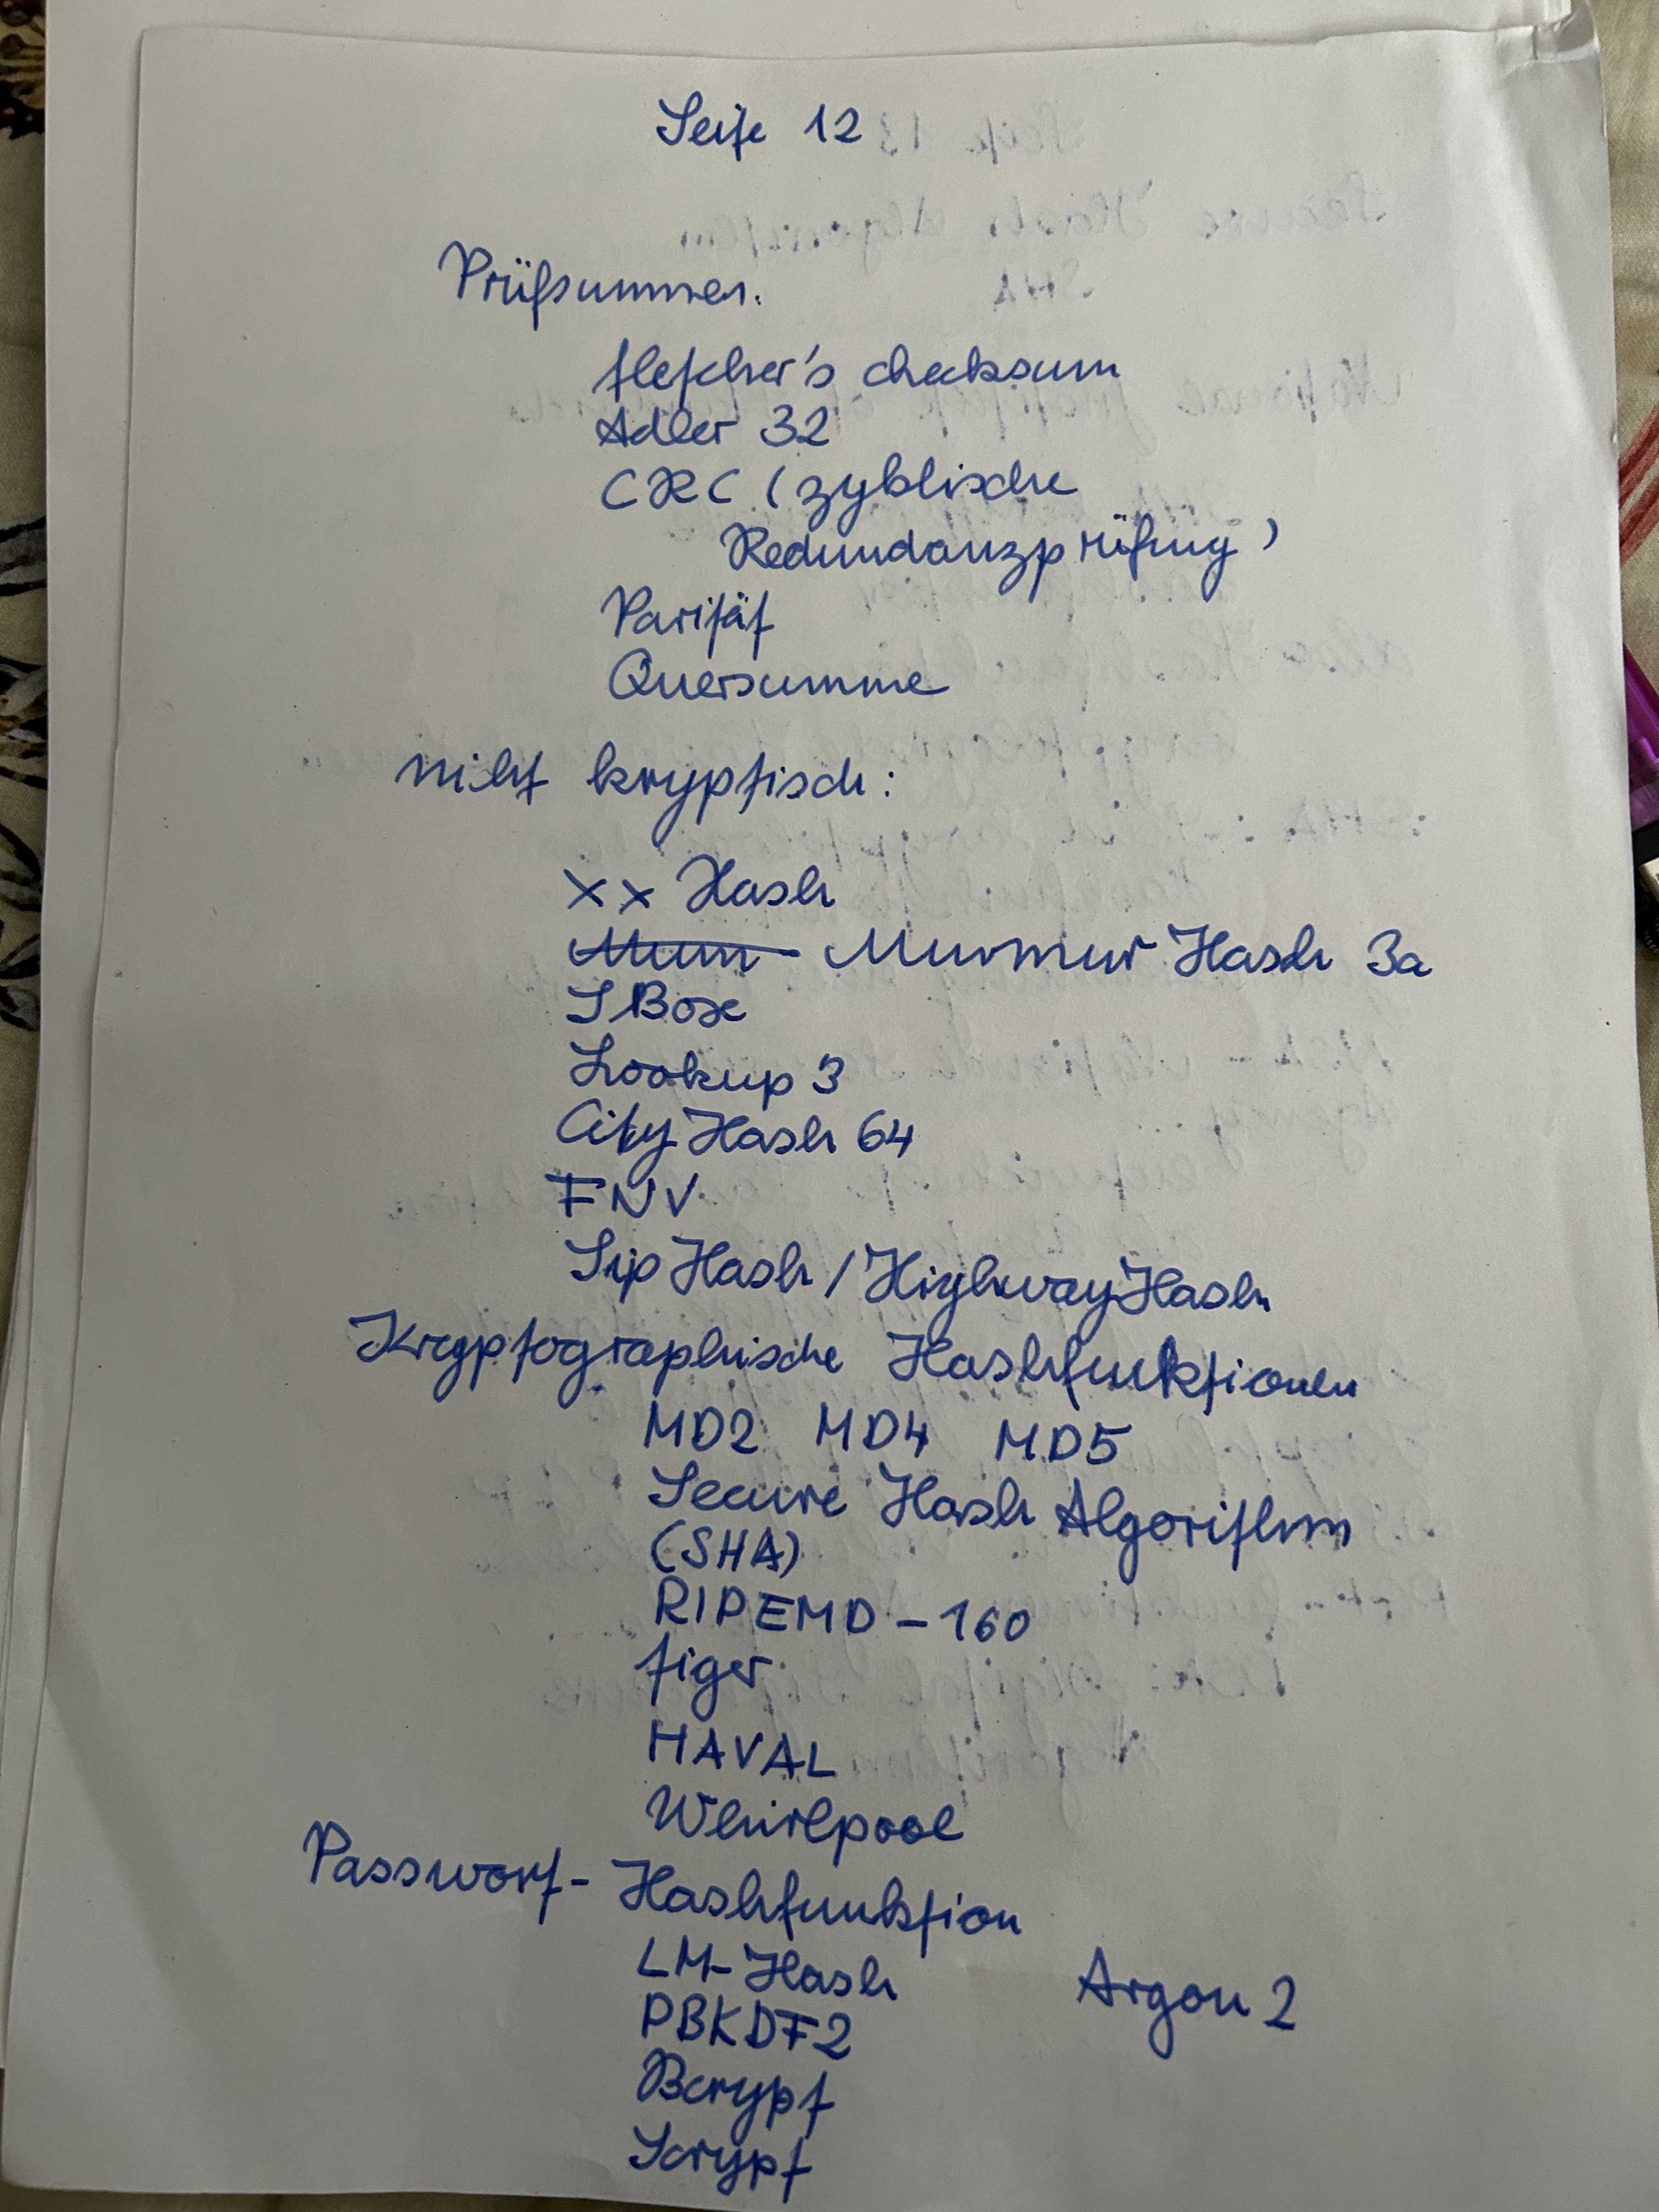 Seite 12
Prüfsummen.
fletcher's checksum
Adler 32
CRC (zyklische
Redundanzprüfung)
Parität
Quersumme
nicht kryptisch:
xx Hash
Mum Murmur Hash 3a
SBox
Lookup 3
City Hash 64
FNV
Sip Hash / HighwayHash
Kryptographische Hashfunktionen
MD2 MD4 MD5
Secure Hash Algorithm
(SHA)
RIPEMD-160
tiger
HAVAL
Whirlpool
Passwort- Hashfunktion
LM-Hash Argon 2
PBKDF2
Bcrypt
Scrypt